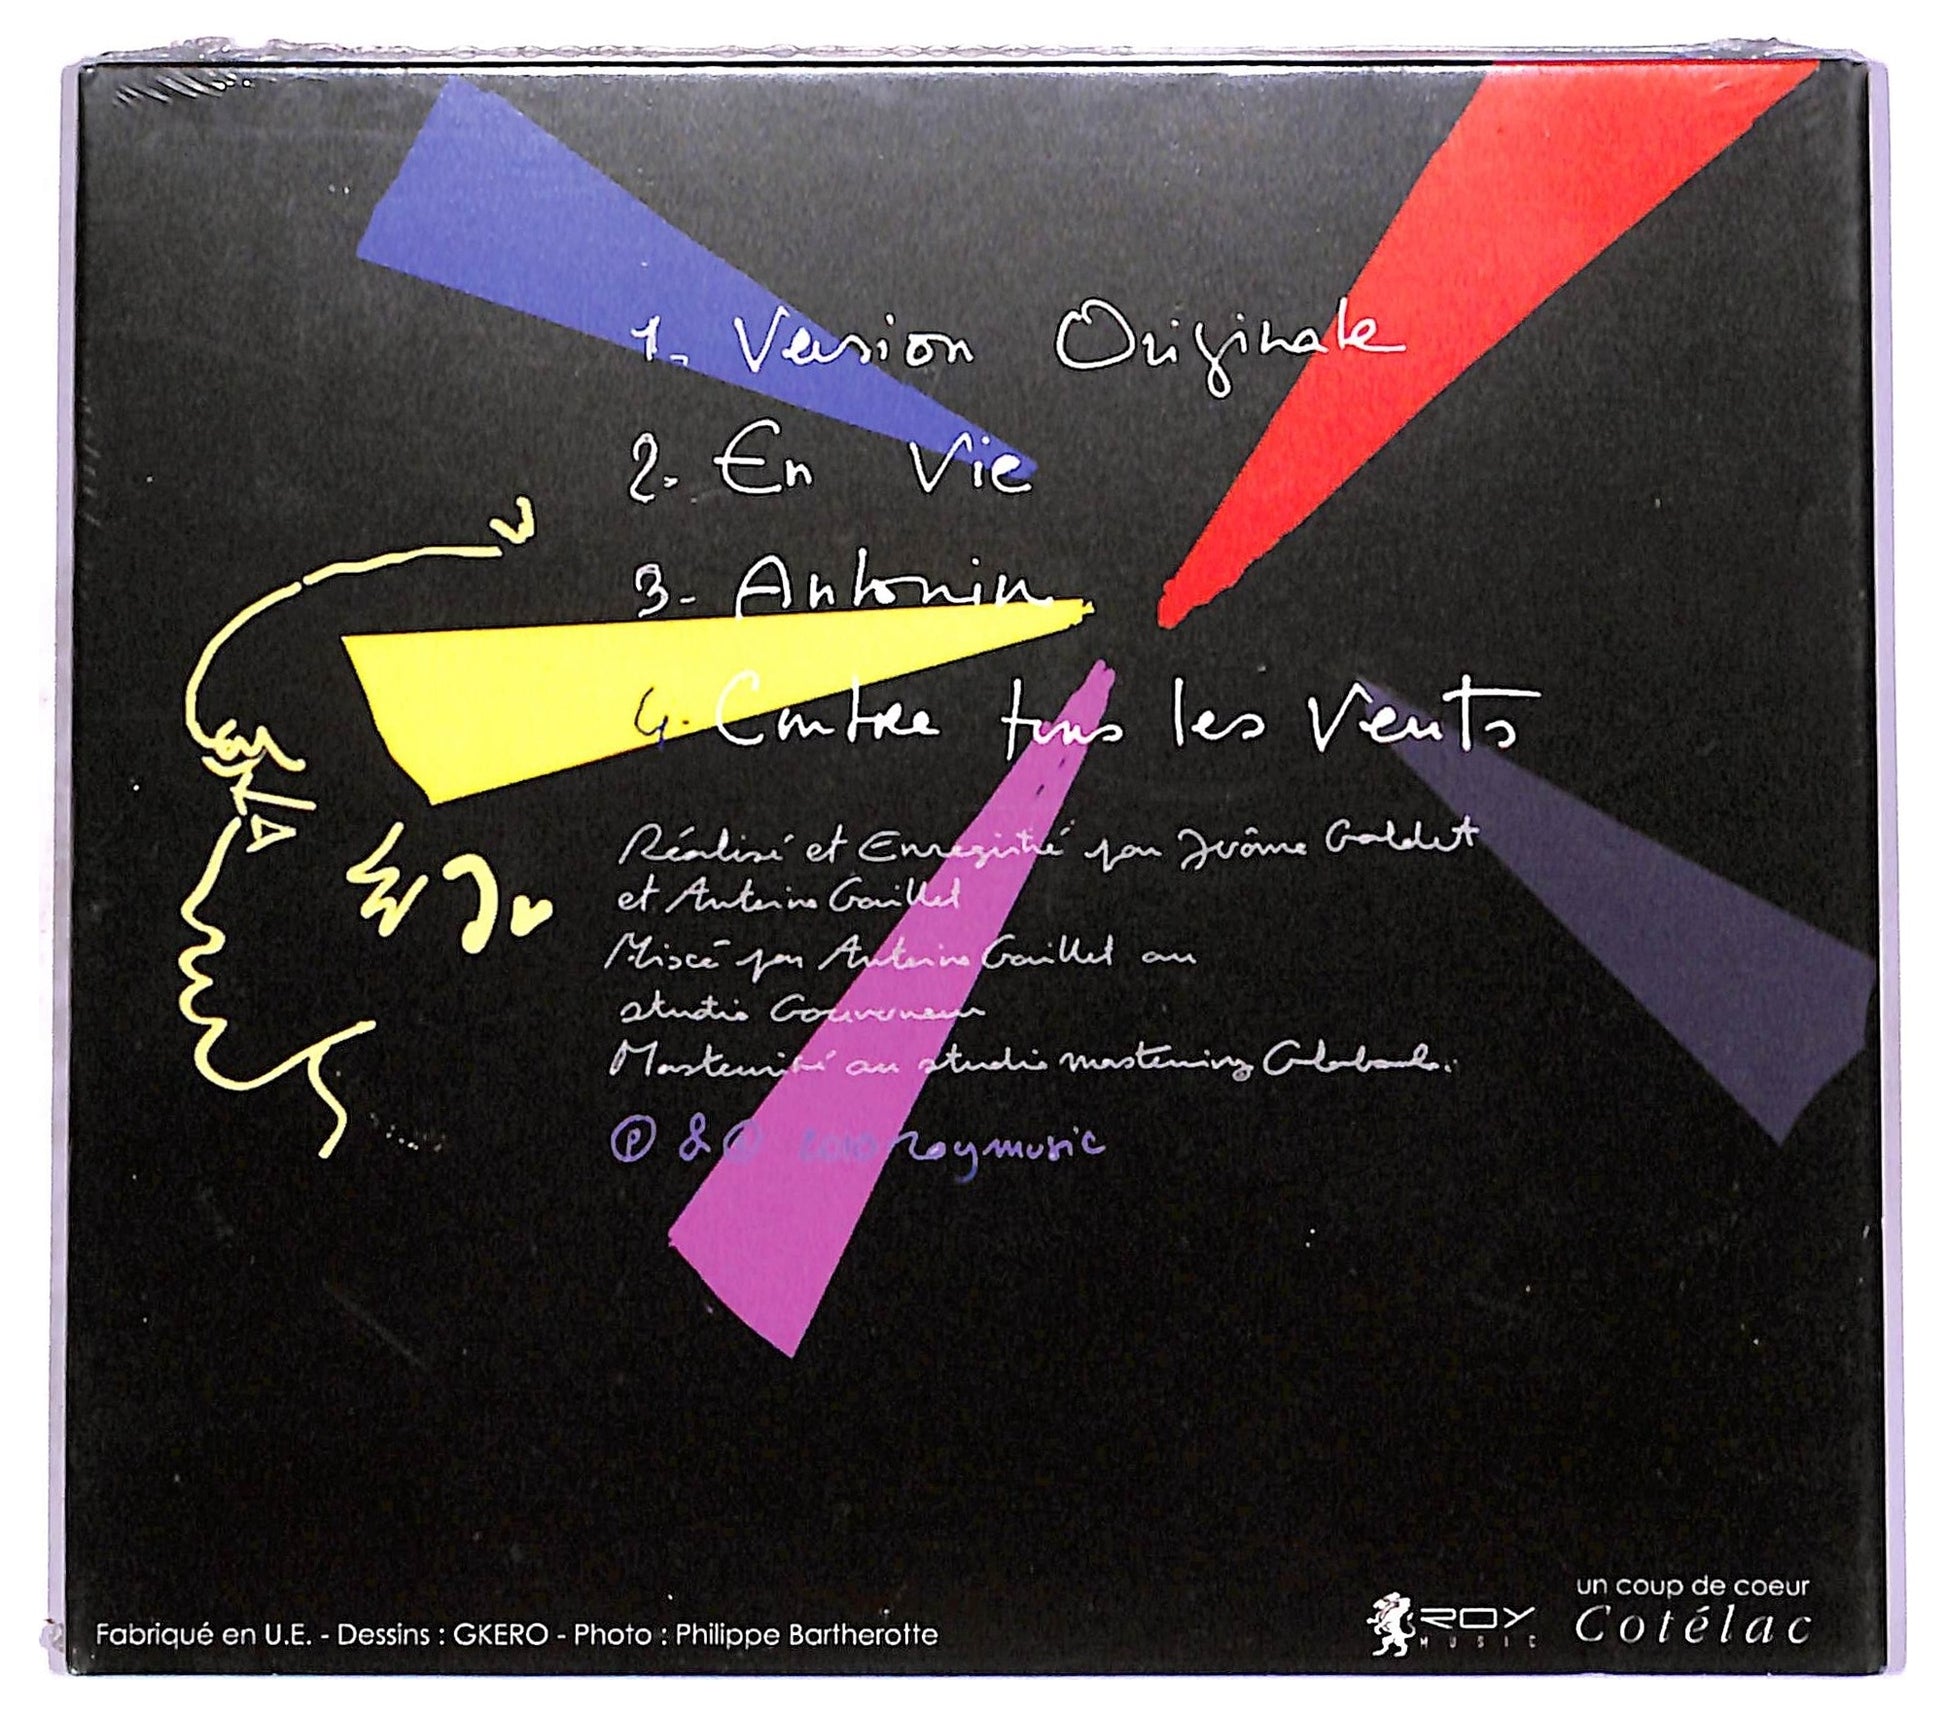 1. Version Originale
2. En Vie
3- Antonin
4. Contre tous les Vents
Réalisé et Enregistré par Jérôme Goldet
et Antoine Gaillet
Mixé par Antoine Gaillet au
studio Gouverneur
Masterisé au studio mastering
℗ & © 2010 roymusic
un coup de coeur
ROY
MUSIC
Cotélac
Fabriqué en U.E. - Dessins : GKERO - Photo : Philippe Bartherotte